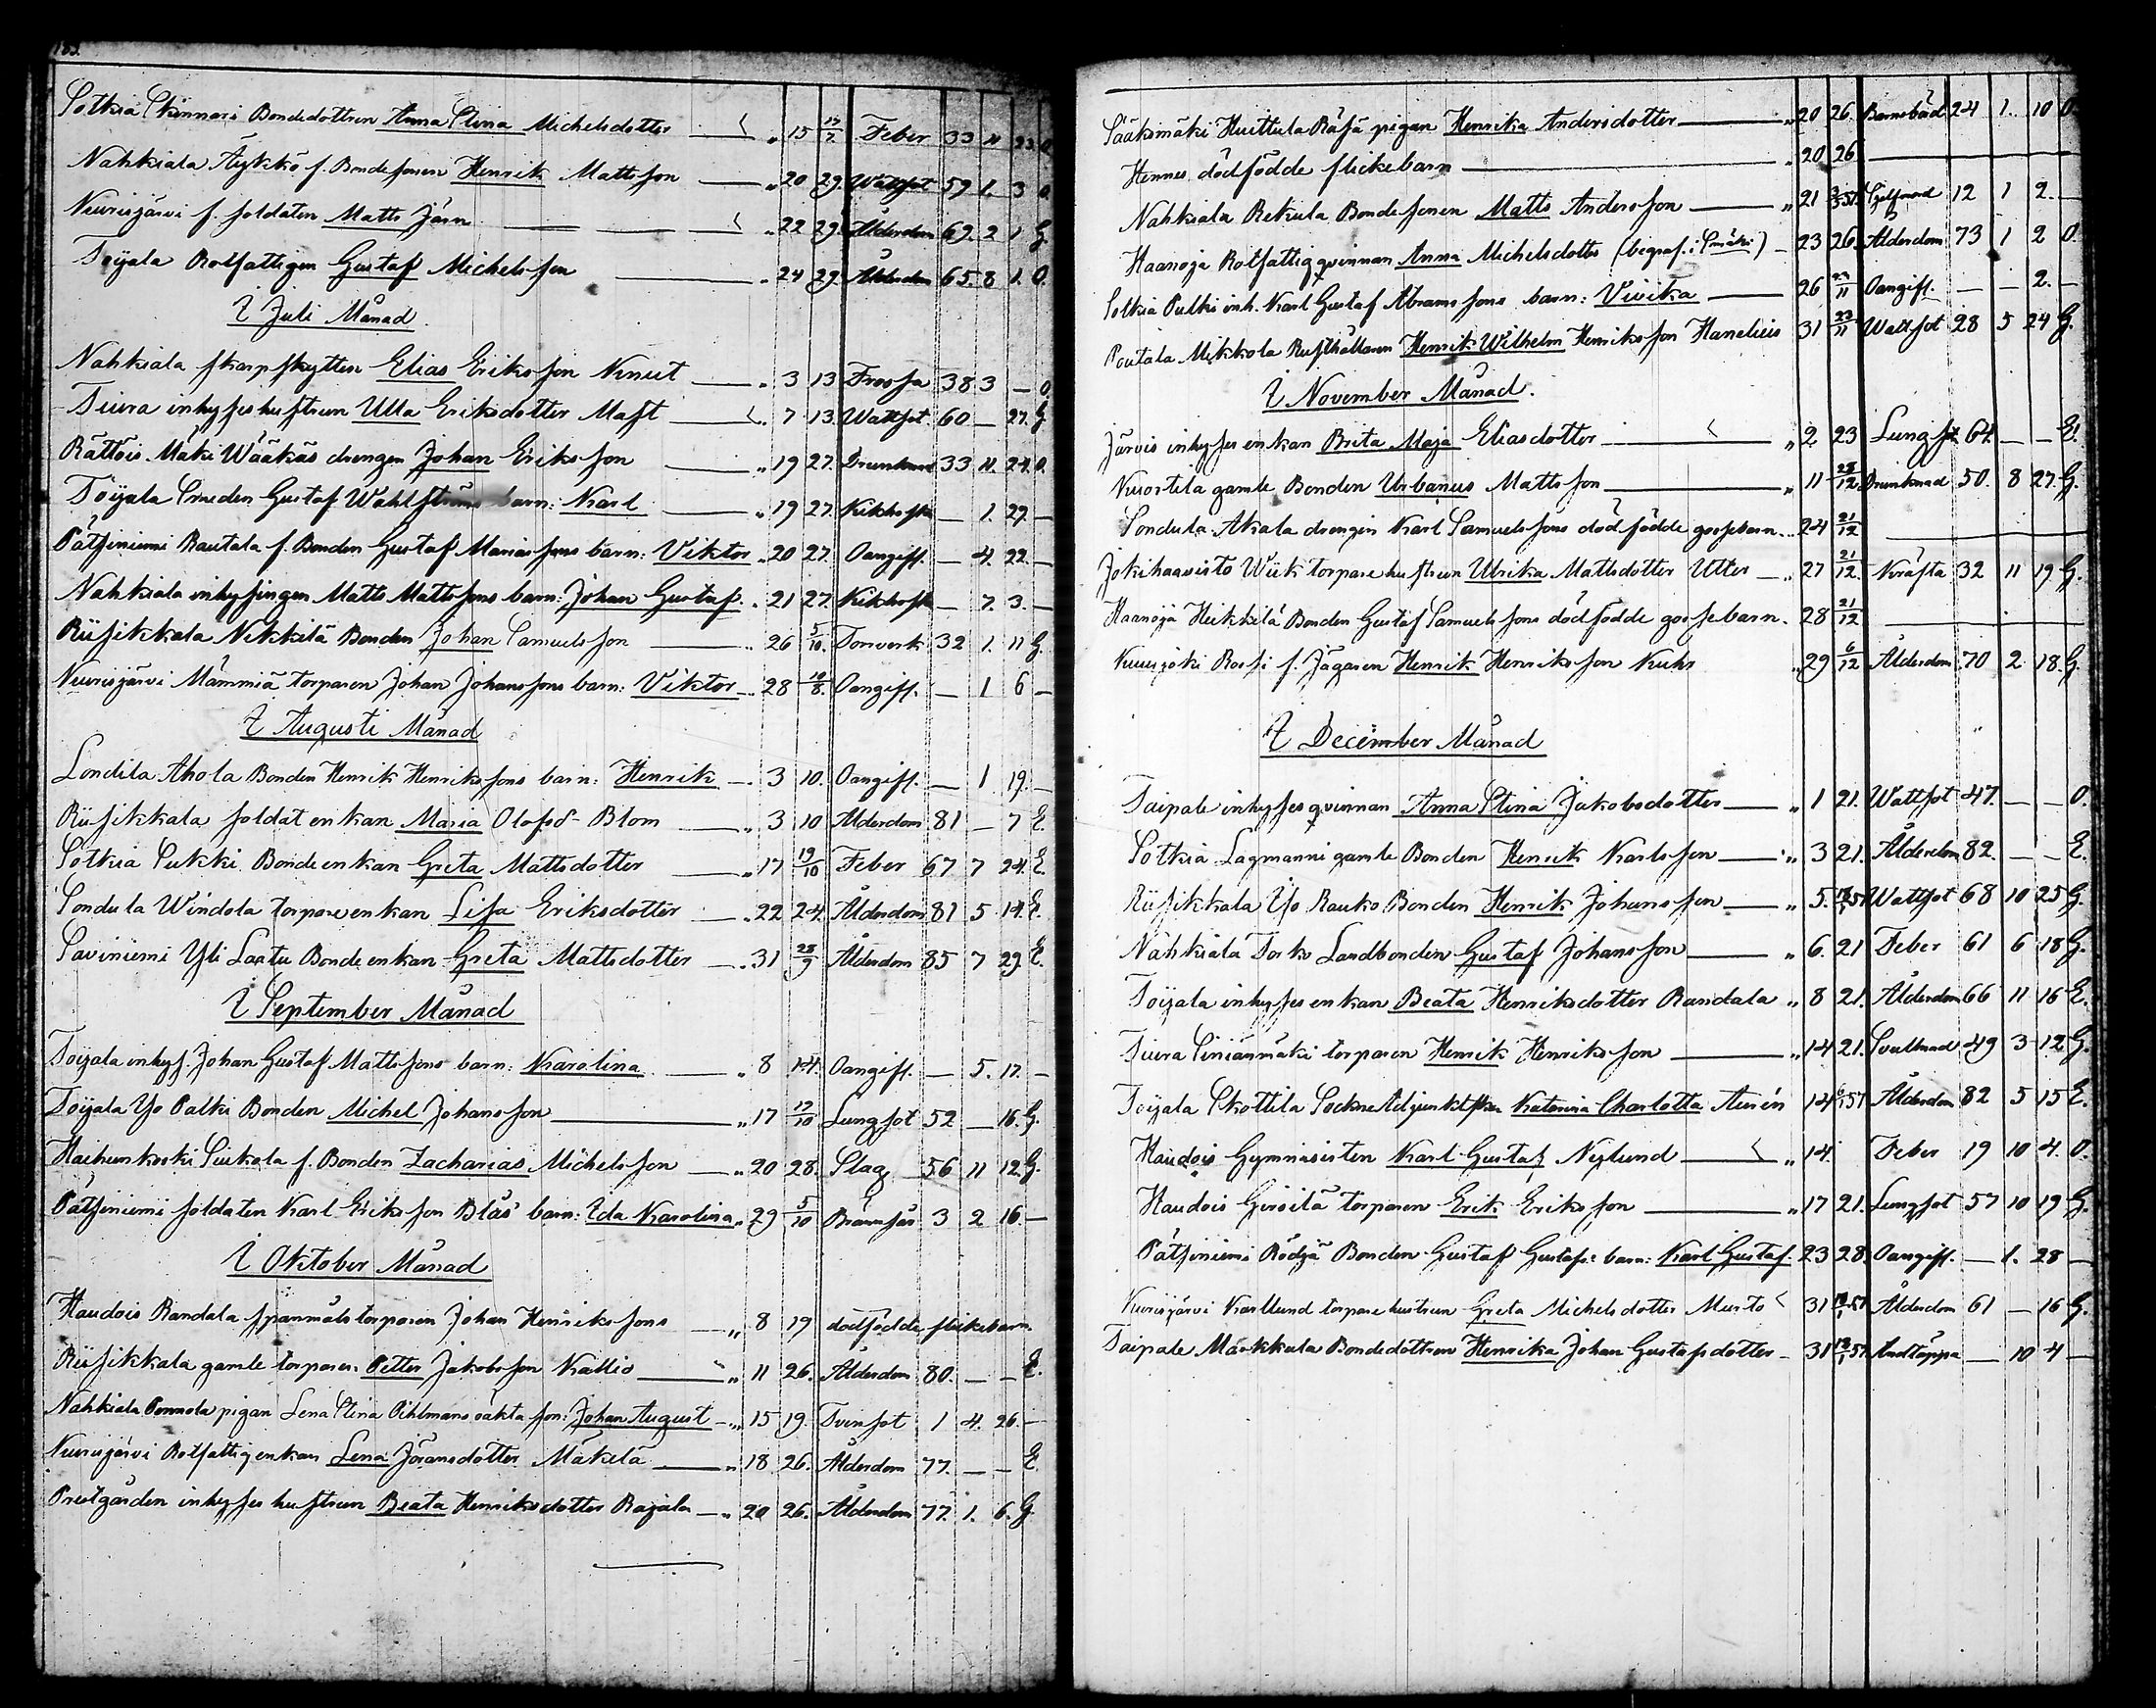 Sotkia Skinnari Bondedottren Anna Stina Michelsdotter „ 15 17/7 Feber 33 11 23 O.
Nahkiala Äykkö f. Bondesonen Henrik Mattsson „ 20 29. Wattsot 59 1. 3 O.
Nuurisjärvi f. soldaten Matts Järn „ 22 29. Ålderdom 69. 2 1 G.
Toijala Rotfattigen Gustaf Michelsson „ 24 29. Ålderdom 65. 8 1. O.
I Juli Månad.
Nahkiala skarpskytten Elias Eriksson Knut „ 3 13 Frossa 38 3 — O.
Tiura inhyseshustrun Ulla Eriksdotter Mast „ 7 13. Wattsot. 60 — 27. G.
Rättöis Mäki Wääkäs drengen Johan Eriksson „ 19 27. Drunknad 33 11. 24. O.
Toijala Smeden Gustaf Wahlströms barn: Karl „ 19 27. Kikhosta — 1. 29. —
Pätsiniemi Rautala f. Bonden Gustaf Mariassons barn: Viktor „ 20 27. Oangift. — 4. 22. —
Nahkiala inhysingen Matts Mattssons barn: Johan Gustaf. „ 21 27. Kikhosta — 7. 3. —
Riisikkala Nikkilä Bonden Johan Samuelsson „ 26 5/10. Torrverk 32 1. 11 G.
Nuurisjärvi Mämmiä torparen Johan Johanssons barn: Viktor „ 28 10/8. Oangift. — 1 6 —
I Augusti Månad
Londila Ahola Bonden Henrik Henrikssons barn: Henrik — 3 10. Oangift. — 1 19. —
Riisikkala soldatenkan Maria Olofsd. Blom „ 3 10 Ålderdom 81 — 7 E.
Sotkia Sukki Bondeenkan Greta Mattsdotter „ 17 19/10 Feber 67 7 24. E.
Sondula Windola torpareenkan Lisa Eriksdotter „ 22 24. Ålderdom 81 5 14. E.
Saviniemi Yli Laatu Bondeenkan Greta Mattsdotter „ 31 28/9 Ålderdom 85 7 29. E.
I September Månad
Toijala inhys. Johan Gustaf Mattssons barn: Karolina „ 8 14. Oangift. — 5. 17. —
Toijala Yso Palki Bonden Michel Johansson „ 17 12/10 Lungsot 52 — 16. G.
Haihunkoski Siukola f. Bonden Zacharias Michelsson „ 20 28. Slag 56 11 12. G.
Pätsiniemi soldaten Karl Eriksson Blås' barn: Ida Karolina „ 29 5/10 Brännsår 3 2 16. —
I Oktober Månad
Haudois Randala spanmålstorparen Johan Henrikssons „ 8 19 dödfödde flickebarn.
Riisikkala gamle torparen Petter Jakobsson Kallio „ 11 26. Ålderdom 80. — — E.
Nahkiala Pennola pigan Lena Stina Pihlmans oäkta son: Johan August „ 15 19. Tvinsot 1 4. 26. —
Nuurisjärvi Rotfattigenkan Lena Jöransdotter Mäkelä „ 18. 26. Ålderdom 77. — — E.
Prestgården inhyseshustrun Beata Henriksdotter Rajala „ 20 26. Ålderdom 77. 1. 6. G.
Sääksmäki Huittula Räsä pigan Henrika Andersdotter „ 20 26. Barnsbörd 24 1. 10 O.
Hennes dödfödde flickebarn „ 20 26
Nahkiala Rekula Bondesonen Matts Andersson „ 21 Sjelfmord 12 1 2. —
Haanoja Rotfattigqvinnan Anna Michelsdotter (begraf. i Smäki) 23 26. Ålderdom 73 1 2 O.
Sotkia Pulkis inh. Karl Gustaf Abramssons barn: Vivika 26 23/11 Oangift. — — 2. —
Poutala Mikkola Rusthållaren Henrik Wilhelm Henriksson Hanelius 31 23/11 Wattsot 28 5 24 G.
I November Månad.
Järvis inhysesenkan Brita Maja Eliasdotter „ 2 23 Lungsot 64. — — E.
Kuortila gamle Bonden Urbanus Mattsson „ 11 28/12 Drunknad 50. 8 27. G.
Sondula Akala drengen Karl Samuelssons dödfödde gossebarn „ 24 21/12
Jokihaavisto Wiik torparehustrun Ulrika Mattsdotter Utter „ 27 21/12. Kräfta 32 11 19 G.
Haanoja Heikkilä Bonden Gustaf Samuelssons dödfödde gossebarn. 28 21/12
Kuurijoki Rossi f. Jägaren Henrik Henriksson Kuhr „ 29 6/12 Ålderdom 70 2. 18. G.
I December Månad
Taipale inhysesqvinnan Anna Stina Jakobsdotter „ 1 21. Wattsot 47. — — O.
Sotkia Lagmanni gamle Bonden Henrik Karlsson „ 3 21. Ålderdom 82. — — E.
Riisikkala Yso Rauko Bonden Henrik Johansson „ 5. Wattsot 68 10 25 G.
Nahkiala Torko Landbonden Gustaf Johansson „ 6. 21 Feber 61 6 18 G.
Toijala inhysesenkan Beata Henriksdotter Randala „ 8 21. Ålderdom 66 11 16 E.
Tiura Siniänmäki torparen Henrik Henriksson „ 14 21. Svullnad 49 3 12. G.
Toijala Skottila Sockne Adjunktskan Katarina Charlotta Aurén 14 Ålderdom 82 5 15 E.
Haudois Gymnasisten Karl Gustaf Nylund „ 14. Feber 19 10 4. O.
Haudois Girsilä torparen Erik Eriksson „ 17 21. Lungsot 57 10 19 G.
Pätsiniemi Rödjä Bonden Gustaf Gustafs: barn: Karl Gustaf. 23 28. Oangift. — 1. 28 —
Nuurisjärvi Karllund torparehustrun Greta Michelsdotter Musto 31 Ålderdom 61 — 16 G.
Taipale Markkula Bondedottren Henrika Johan Gustafsdotter 31 Andtäppa — 10 4 —